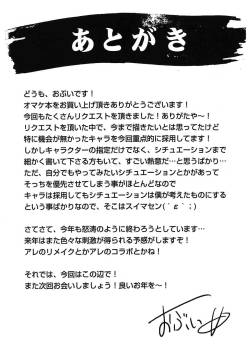 あとがき
どうも、おぶいです！
オマケ本をお買い上げ頂きありがとうございます！
今回もたくさんリクエストを頂きました！ありがたや～！
リクエストを頂いた中で、今まで描きたいとは思ってたけど
特に機会が無かったキャラを今回重点的に採用してます！
しかしキャラクターの指定だけでなく、シチュエーションまで
細かく書いて下さる方もいて、すごい熱意だ…と思うばかり…
ただ、自分でもやってみたいシチュエーションとかがあって
そっちを優先させてしまう事がほとんどなので
キャラは採用してもシチュエーションは僕が考えたものにする
という事ばかりなので、そこはスイマセン(｀ε´；)
さてさて、今年も怒涛のように終わろうとしています…
来年はまた色々な刺激が得られる予感がしますぞ！
アレのリメイクとかアレのコラボとかね！
それでは、今回はこの辺で！
また次回お会いしましょう！良いお年を～！
おぶい